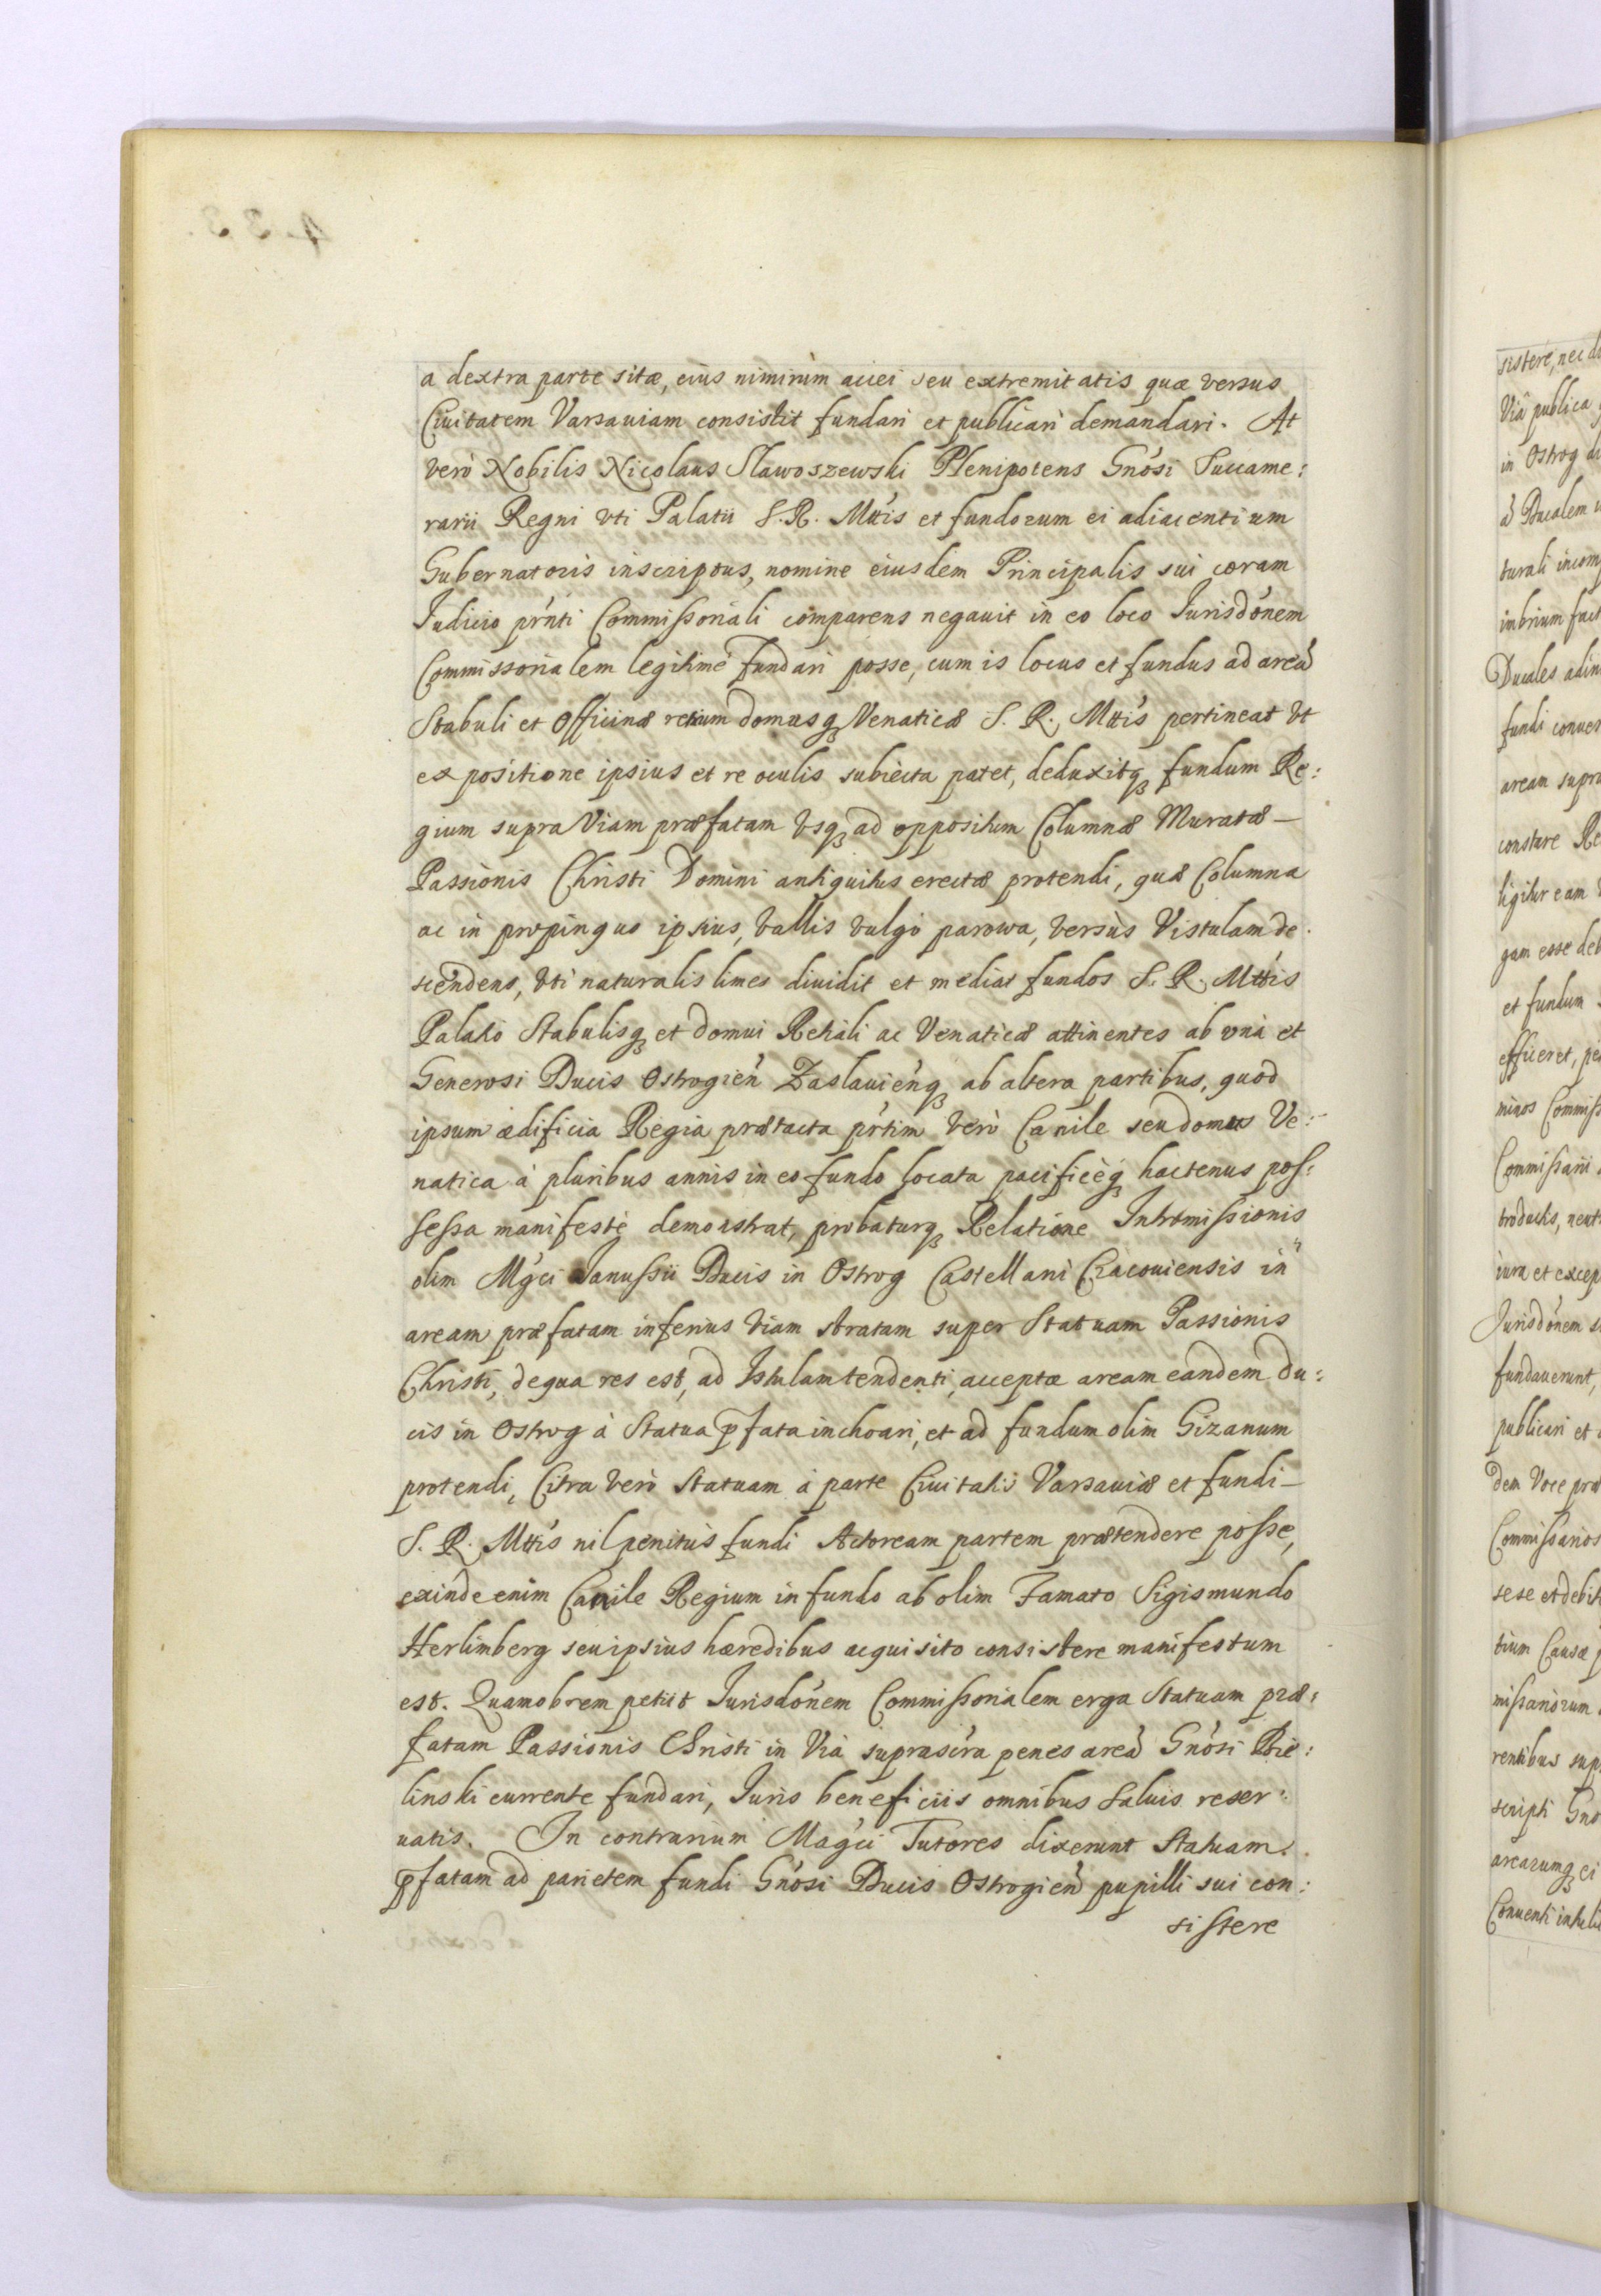 a dextra parte sitæ, eius nimirùm aciei seu extremitatis quæ versus
Ciuitatem Varsauiam consistit fundari et publicari demandari. At
verò Nobilis Nicolaus Slawoszewski Plenipotens Gnósi Succame:
rarii Regni vti Palatii S. R. Mttis et fundorum ei adiacentium
Gubernatoris inscriptus, nomine eiusdem Principalis sui coram
Iudicio prńti Commissoriali comparens negauit in eo loco Iurisdónem
Commissorialem legitimè fundari posse, cum is locus et fundus ad areã
Stabuli et Officinæ retium domusq3 Venaticæ S. R. Mttis pertineat vt
ex positione ipsius et re oculis subiecta patet, deduxitq3 fundum Re:
gium supra Viam præfatam vsq3 ad oppositum Columnæ Muratæ —
Passionis Christi Domini antiquitus erectæ protendi, quæ Columna
ac in propinquo ipsius, vallis vulgò parowa, versùs Vistulam de:
scendens, vti naturalis limes diuidit et mediat fundos S. R. Mttis
Palatio Stabulisq3 et domui Retiali ac Venaticæ attinentes ab vnà et
Generosi Ducis Ostrogień Zaslauieńq3 ab altera partibus, quod
ipsum ædificia Regia prætacta prtim verò Canile seu domus Ve:
natica à pluribus annis in eo fundo locata pacificèq3 hactenus pos:
sessa manifestè demonstrat, probaturq3 Relatione Intromissionis
olim Mgci Ianussii Ducis in Ostrog Castellani Cracouiensis in
aream præfatam inferius viam stratam super Statuam Passionis
Christi, de qua res est, ad Istulam tendenti, acceptæ aream eandem Du:
cis in Ostrog à Statua pfata inchoari, et ad fundum olim Gizanum
protendi, Citra verò Statuam à parte Ciuitatis Varsauiæ et fundi —
S. R. Mttis nil penitùs fundi Actoream partem prætendere posse,
exinde enim Canile Regium in fundo ab olim Famato Sigismundo
Herlimberg seu ipsius hæredibus acquisito consistere manifestum
est. Quamobrem petiit Iurisdónem Commissorialem erga Statuam præ:
fatam Passionis Christi in Vià suprascra penes areã Gnósi Bie:
linski currente fundari, Iuris beneficiis omnibus saluis reser:
uatis. In contrarium Magci Tutores dixerunt Statuam
pfatam ad parietem fundi Gnósi Ducis Ostrogień pupilli sui con:
sistere
sistere, nec
Viâ publica
in Ostrog
à Ducalem
turali
imbrium
Ducales
fundi
aream supra
constare
ligitur eam
gam esse
et fundum
efficeret,
minos
Commissarii
troductis,
iura et
Iurisdónem
fundauerunt,
publicari et
dem Voce
Commissarios
sese et
tium Causæ
missariorum
rentibus
scripti
arearumq3 ei
Conuenti